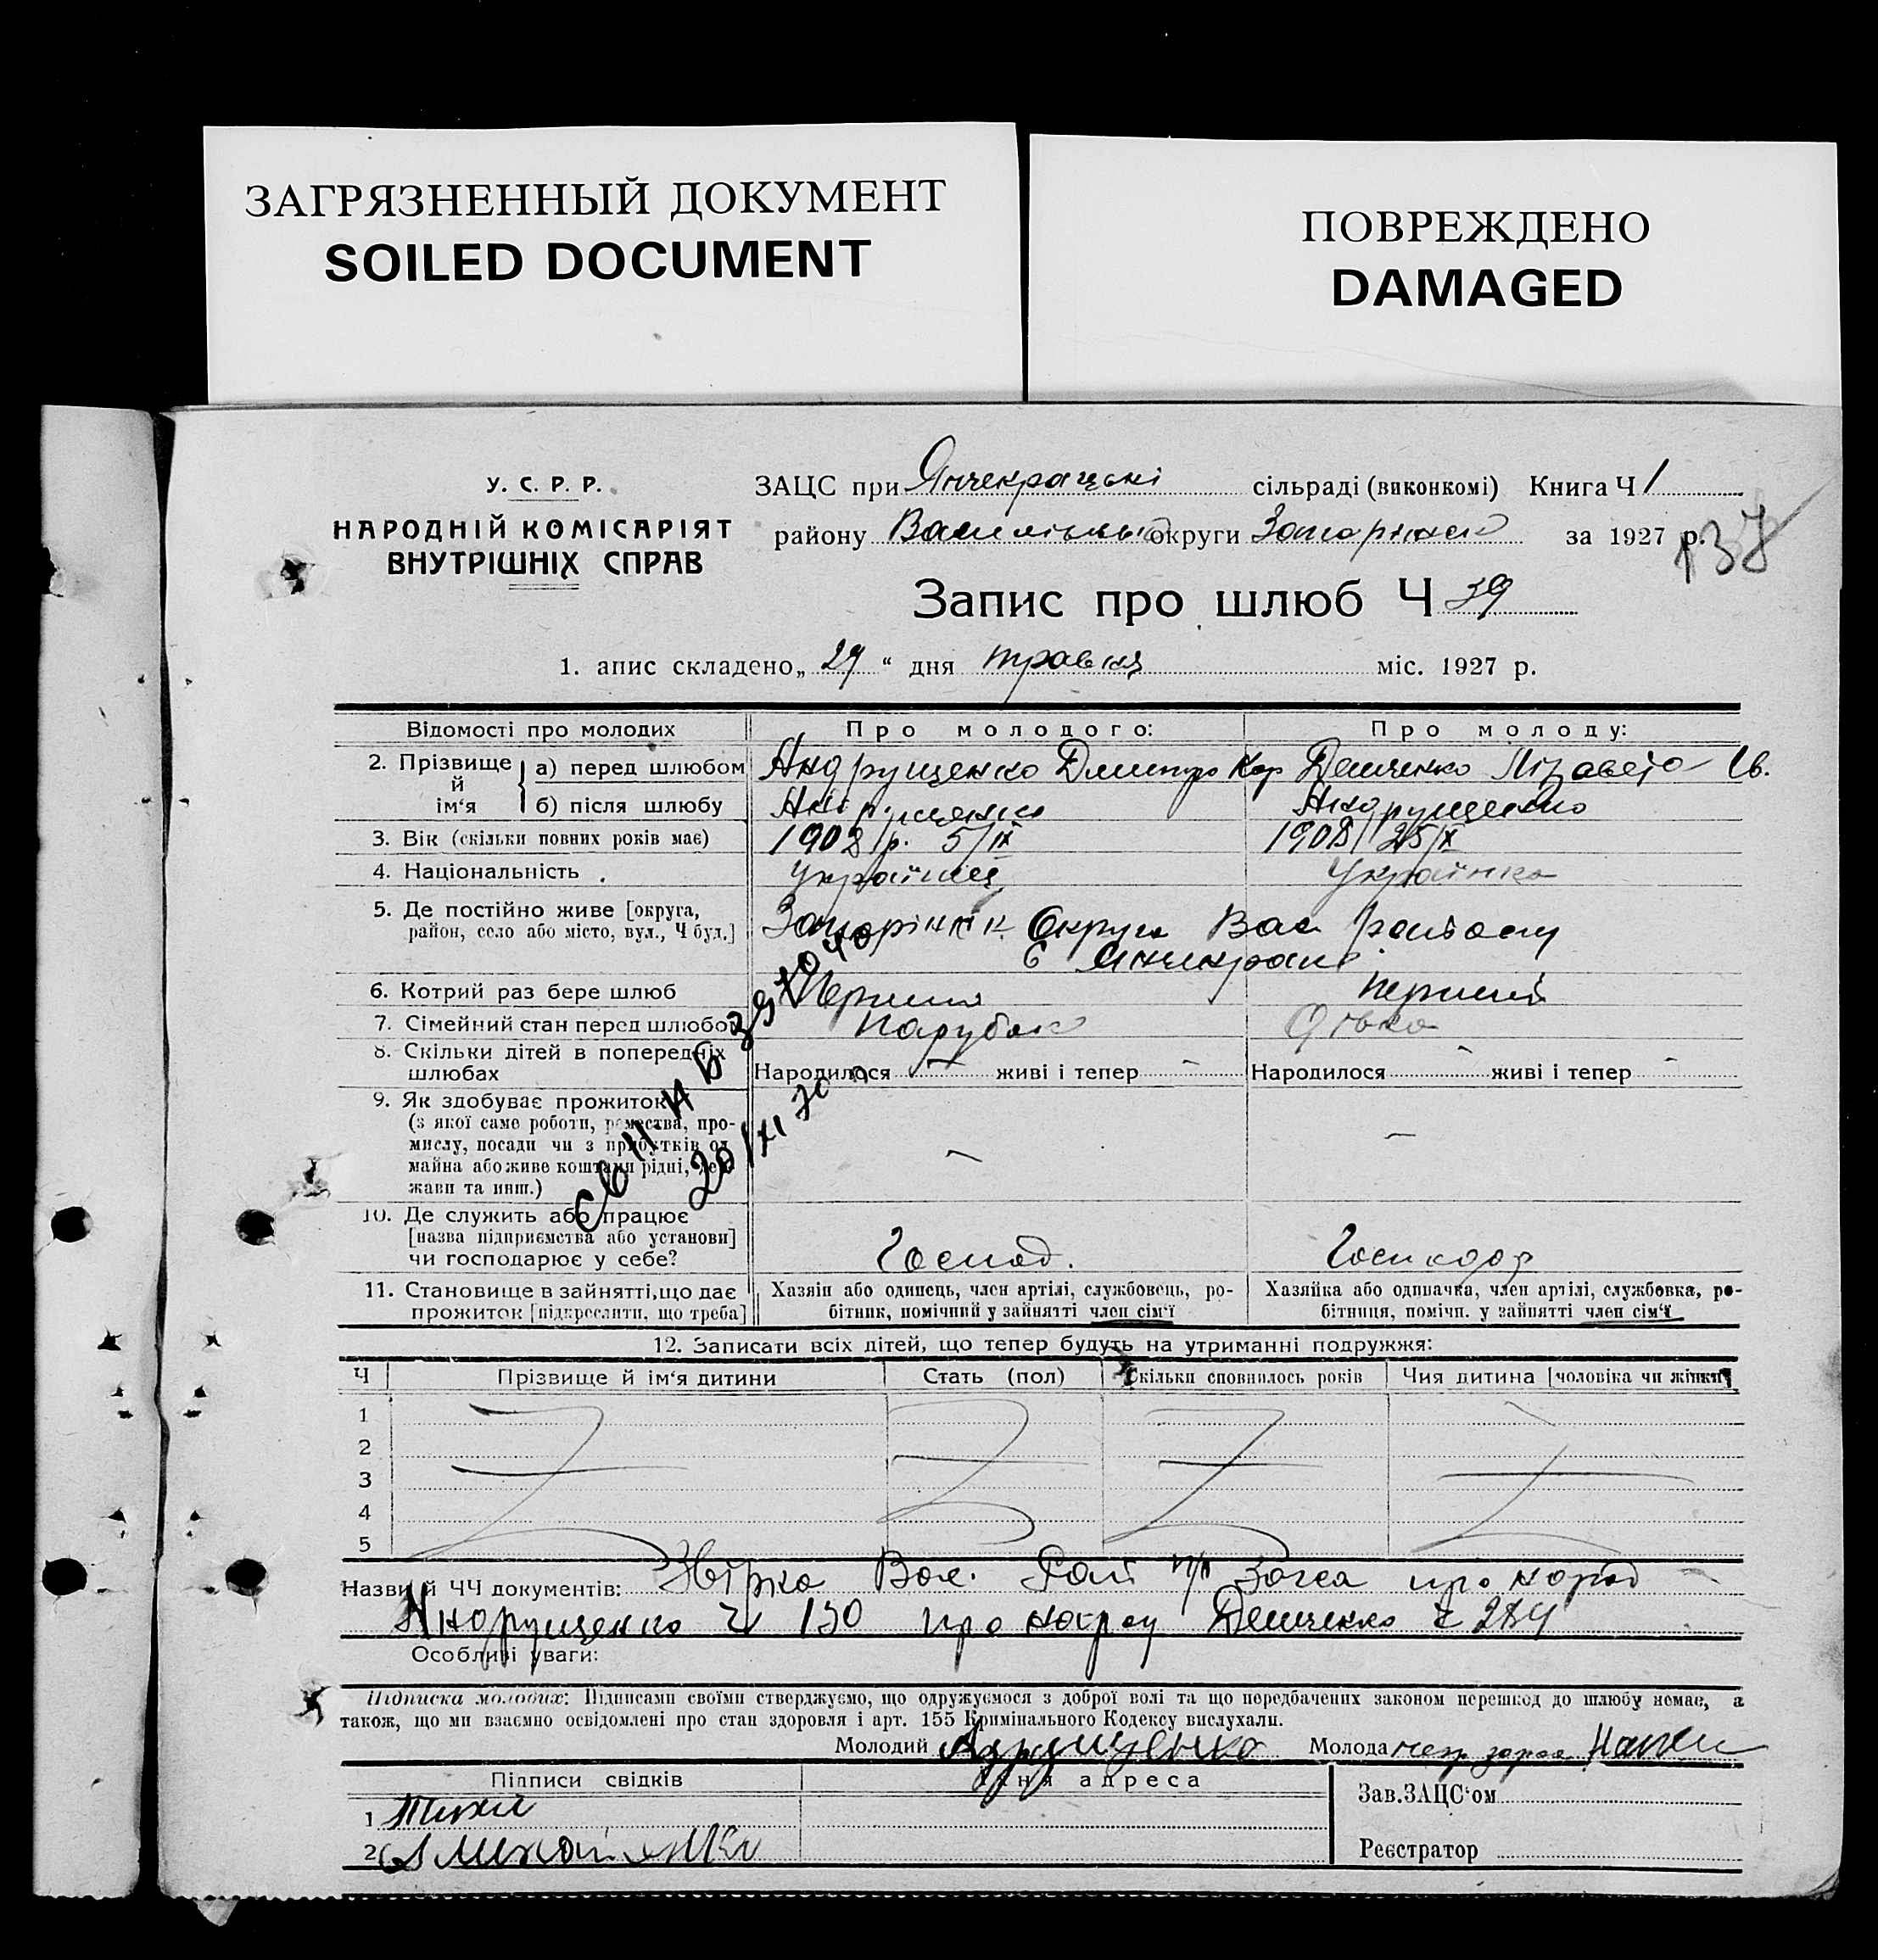 ЗАГРЯЗНЕННЫЙ ДОКУМЕНТ
SOILED DOCUMENT
ПОВРЕЖДЕНО
DAMAGED
У. С. Р. Р.
НАРОДНІЙ КОМІСАРІЯТ
ВНУТРІШНІХ СПРАВ
ЗАЦС при Янчекрацькі сільраді (виконкомі) Книга Ч 1
району Василівськ округи Запоріжск за 1927 р.
137
Запис про шлюб Ч 39
1. апис складено „ 29 “ дня травня міс. 1927 р.
Відомості про молодих Про молодого: Про молоду:
2. Прізвище й ім‘я а) перед шлюбом Андрущенко Дмитро Кар Демченко Лізавета Ів.
б) після шлюбу Андрущенко Андрущенко
3. Вік (скільки повних років має) 1908 р. 5/IX 1908 25/X
4. Національність Українец Українка
5. Де постійно живе [округа, район, село або місто, вул., Ч буд.] Запоріжск Округи Вас району
с Янчикрак
6. Котрий раз бере шлюб Перший перший
7. Сімейний стан перед шлюбом Парубок Дівка
8. Скільки дітей в попередніх шлюбах Народилося - живі і тепер - Народилося - живі і тепер -
9. Як здобуває прожиток
(з якої саме роботи, ремества, про-
мислу, посади чи з прибутків од
майна або живе коштами рідні, дер-
жави та инш.)
20/XI 30
10. Де служить або працює
[назва підприємства або установи]
чи господарює у себе? Господ. Господар
11. Становище в зайнятті, що дає
прожиток [підкреслити, що треба]
Хазяїн або одинець, член артілі, службовець, ро-
бітник, помічний у зайнятті член сім‘ї
Хазяйка або одиначка, член артілі, службовка, ро-
бітниця, помічн. у зайнятті член сім‘ї
12. Записати всіх дітей, що тепер будуть на утриманні подружжя:
Ч Прізвище й ім‘я дитини Стать (пол) Скільки сповнилось років Чия дитина [чоловіка чи жінки]
1
2
3
4
5
Назви й ЧЧ документів: Вас. Рай п/р Загса про народ
Андрущенко Ч 130 про народ Демченко Ч 284
Особливі уваги:
Підписка молодих: Підписами своїми стверджуємо, що одружуємося з доброї волі та що передбачених законом перешкод до шлюбу немає, а
також, що ми взаємно освідомлені про стан здоровля і арт. 155 Кримінального Кодексу вислухали.
Молодий Адрущенко Молода
Підписи свідків їхня адреса
1
2
Зав. ЗАЦС‘ом
Реєстратор